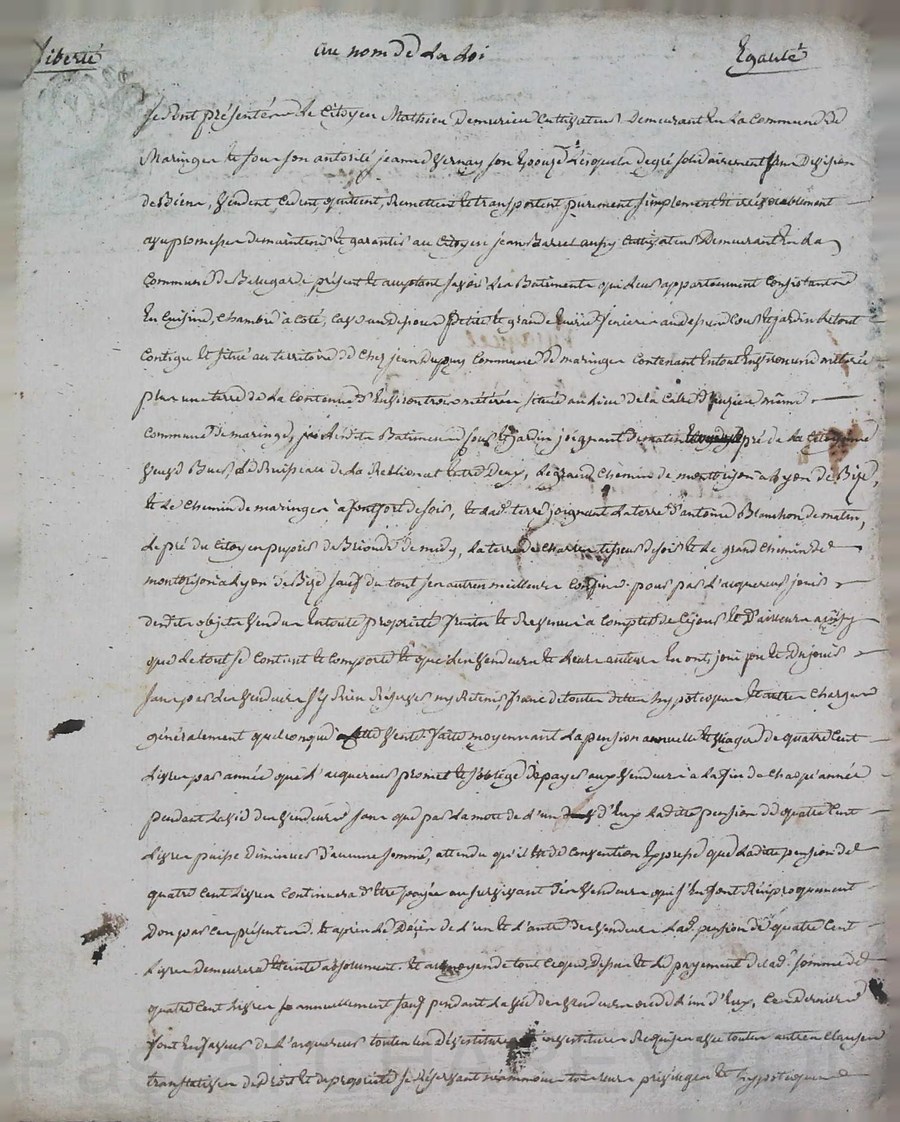 Liberté au nom de la loi Egalité
Se sont présentés le Citoyen Mathieu cultivateur Demeurant En la Commune de
Maringes Et sous son autorité jeanne Vernay son Epouse lesquels de gré solidairement sans Division
de Biens, Vendent Cedent, quittent, Remettent Et transportent purement simplement Et irrévocablement
avec promesse de maintenir Et garantir au Citoyen jean cultivateur Demeurant En la
Commune de Bellegarde présent Et acceptant savoir les Batiments qui leur appartiennent Consistants
En Cuisine, Chambre à coté, Cave au dessous petite Et grande Ecurie fenierre au dessus Cour Et jardin le tout
Contigu Et situé au territoire de Chez jean Commune de maringes contenant En tout Environ une métérée
plus une terre de la Contenue d'Environ trois métérées située au lieu de la même
Commune de maringes, lesdits Batiments Cour Et jardin joignent de matin pré de la Citoyenne
Veuve le Ruisseau de la Entre Deux, le grand Chemin de montbrison à Lyon de Bize,
Et le Chemin de maringes à de soir, Et lad. terre joignant la terre d'antoine Blanchon de matin,
le pré du Citoyen de de midy, la terre de Charles de soir Et le grand chemin de
montbrison à Lyon de Bize sauf du tout ses autres meilleurs Confins. pour par l'acquereur jouir
desdits objets Vendus En toute propriété fruits Et Revenus à compter de Cejour Et D'ailleurs ainsy
que le tout se Contient Et Comporte Et que les Vendeurs Et leurs auteurs En ont joui pu Et Du jouir
sans par les Vendeurs s'y Rien Réserver ny Retenir, franc de toutes dettes hypoteques Et autres Charges
généralement quelconques Vente faite moyennant la pension annuelle Et Viagere de quatre Cent
Livres par année que l'acquereur promet Et s'oblige de payer aux Vendeurs à la fin de chaque année
pendant la vie des Vendeurs sans que par la mort de l'un d'Eux ladite pension de quatre Cent
Livres puisse Diminuer d'aucune somme, attendu qu'il Est de Convention Expresse que ladite pension de
quatre Cent Livres Continuera d'Etre payée au survivant des Vendeurs qui s'En font Réciproquement
Don par Ces présentes. Et après le Décès de l'un Et l'autre des Vendeurs lad. pension de quatre Cent
Livres demeurera Eteinte absolument. Et au moyen de tout ce que Dessus Et du payement de lad. somme de
quatre Cent Livres annuellement sauf pendant la vie des Vendeurs ou de l'un d'Eux, Ces derniers
font En faveur de l'acquereur toutes les dévestitures investitures Requises avec toutes autres Clauses
translatives de Droit Et de propriété se Réservant néanmoins tous leurs privileges Et hypoteques